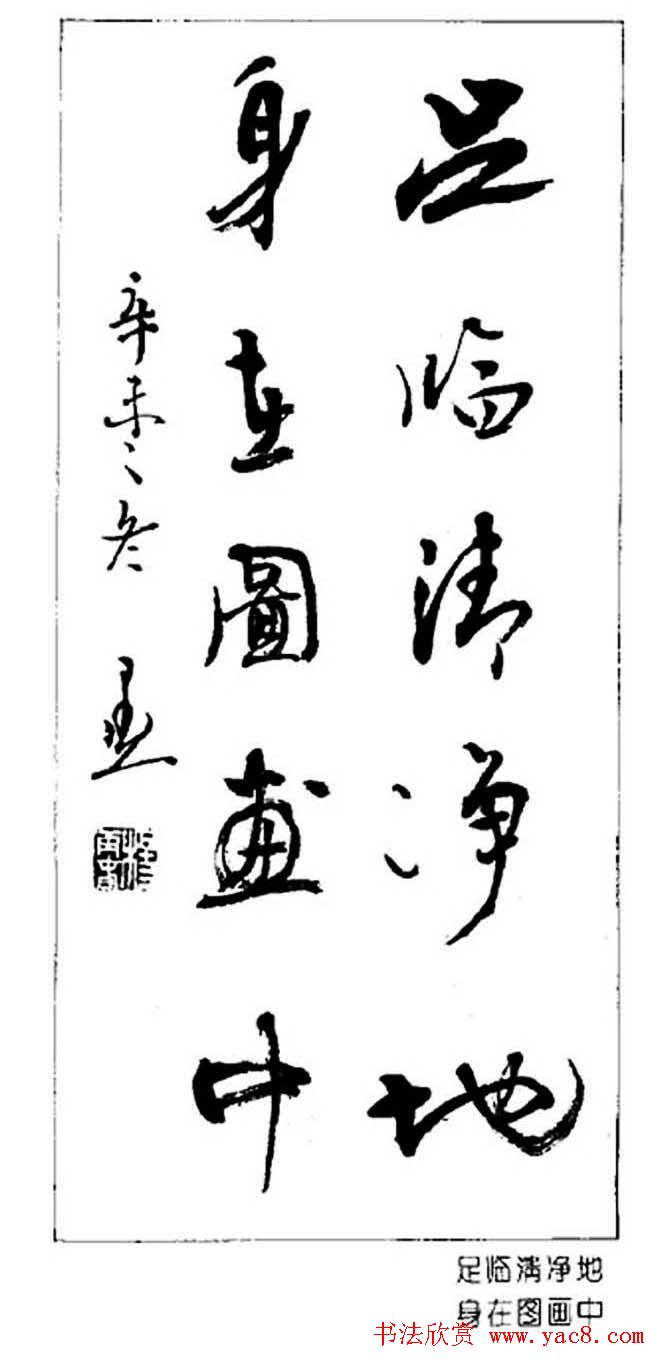 足临清净地
身在圖画中
辛未之冬
足临清净地
身在图画中
书法欣赏 www.yac8.com